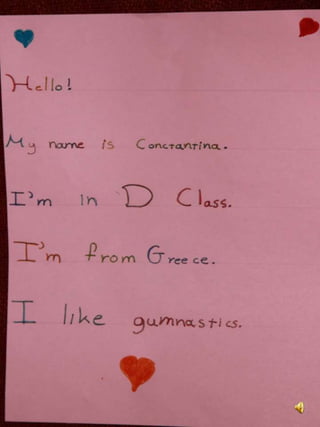 Hello!
My name is Conctantina.
I'm in D Class.
I'm from Greece.
I like gumnastics.